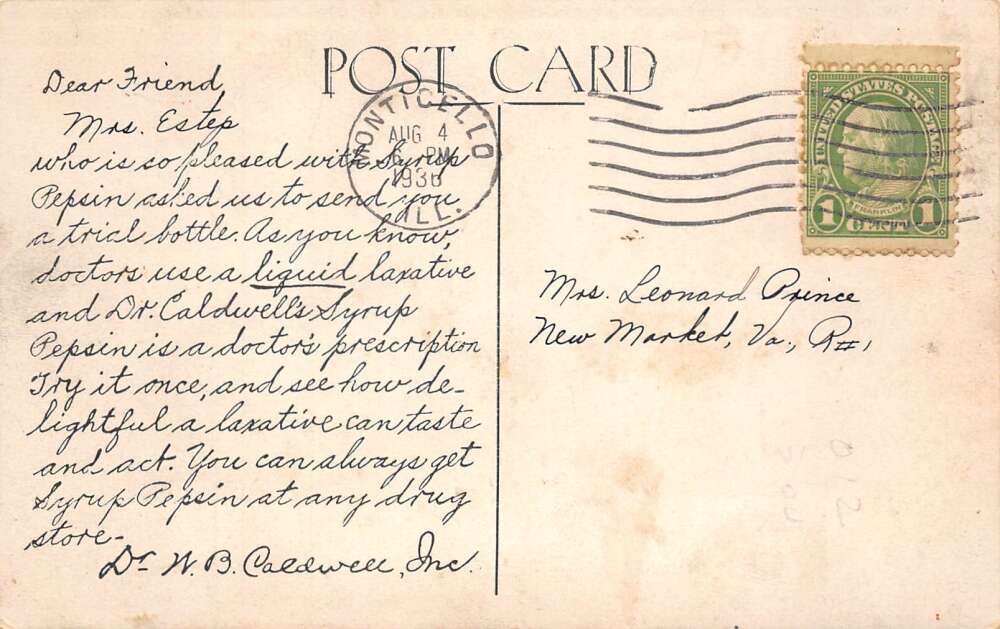 POST CARD
Dear Friend,
Mrs. Estep
who is so pleased with Syrup
Pepsin asked us to send you
a trial bottle. As you know,
doctors use a liquid laxative
and Dr. Caldwell's Syrup
Pepsin is a doctor's prescription
Try it once, and see how de-
lightful a laxative can taste
and act. You can always get
Syrup Pepsin at any drug
store-
Dr. W. B. Caldwell, Inc.
MONTICELLO
AUG 4
6 PM
1936
ILL.
UNITED STATES POSTAGE
FRANKLIN
1 CENT 1
Mrs. Leonard Prince
New Market, Va., R#1